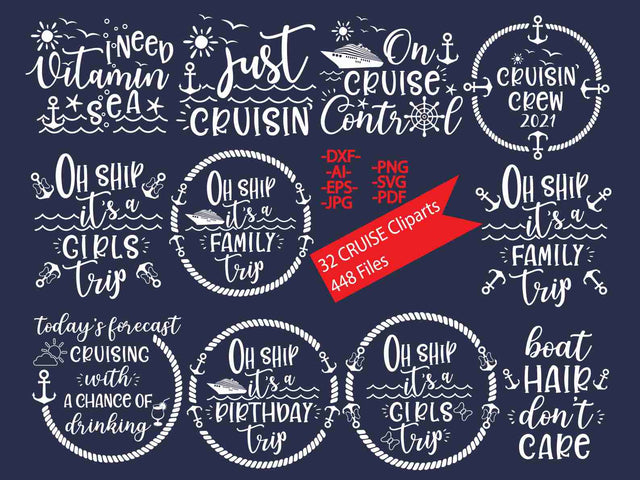 i NEED
Vitamin
SEA
Just
CRUISIN'
On
CRUISE
Control
CRUISIN'
CREW
2021
OH SHIP
it's a
GIRLS
trip
OH SHIP
it's a
FAMILY
trip
-DXF-
-AI-
-EPS-
-JPG
-PNG
-SVG
-PDF
32 CRUISE Cliparts
448 Files
OH SHIP
it's a
FAMILY
trip
today's forecast
CRUISING
with
A CHANCE OF
drinking
OH SHIP
it's a
BIRTHDAY
trip
OH SHIP
it's a
GIRLS
trip
boat
HAIR
don't
CARE